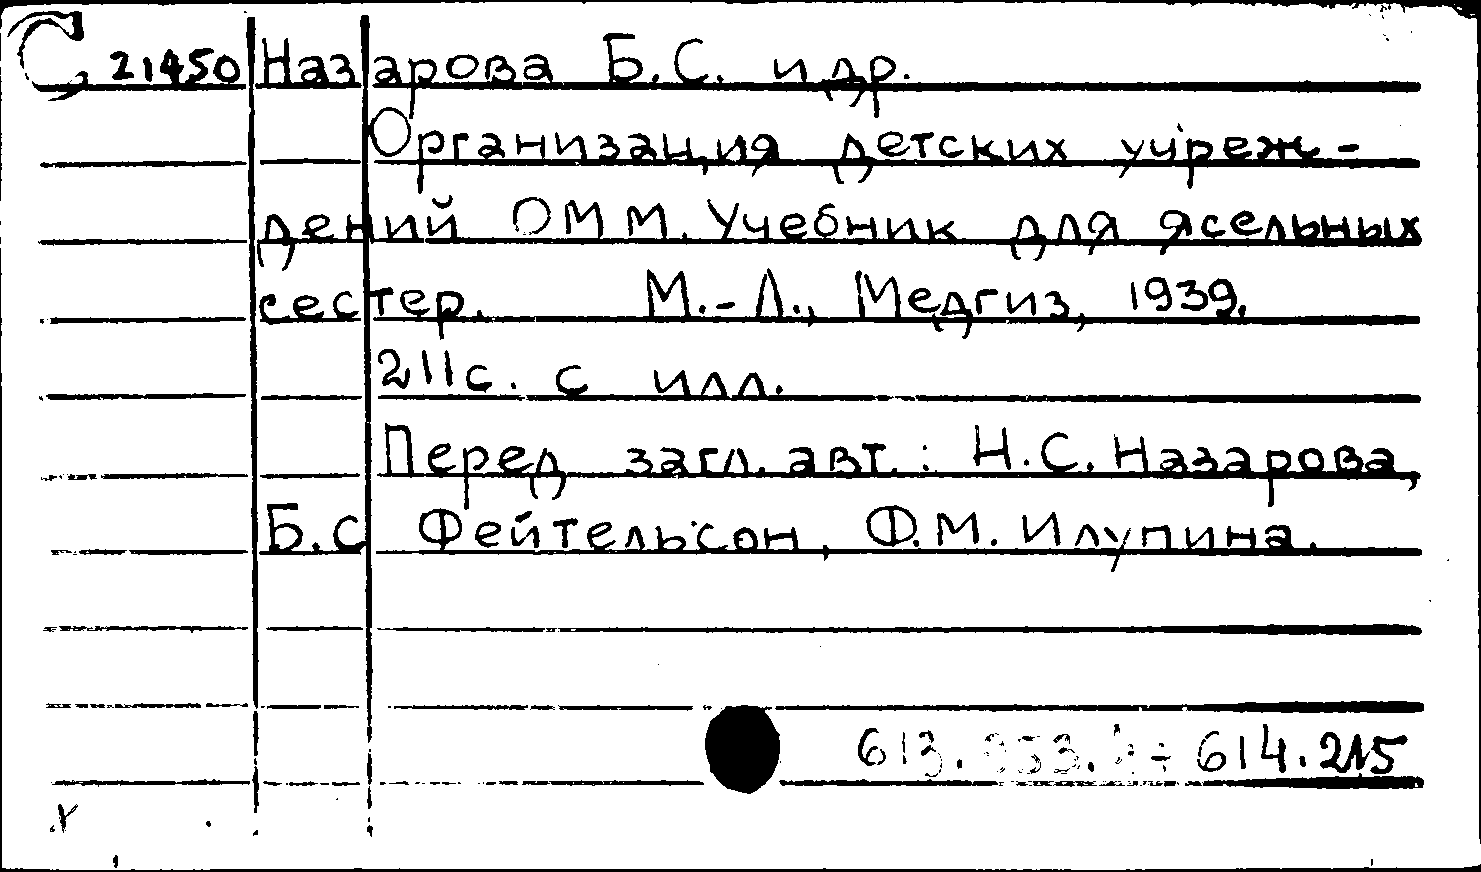 С 21450 Назарова Б.С. и др.
Организация детских учреж-
дений ОММ. Учебник для ясельных
сестер. М.-Л., Медгиз, 1939.
211с. с илл.
Перед загл. авт.: Н.С. Назарова,
Б.С Фейтельсон, Ф.М. Илупина.
614.215